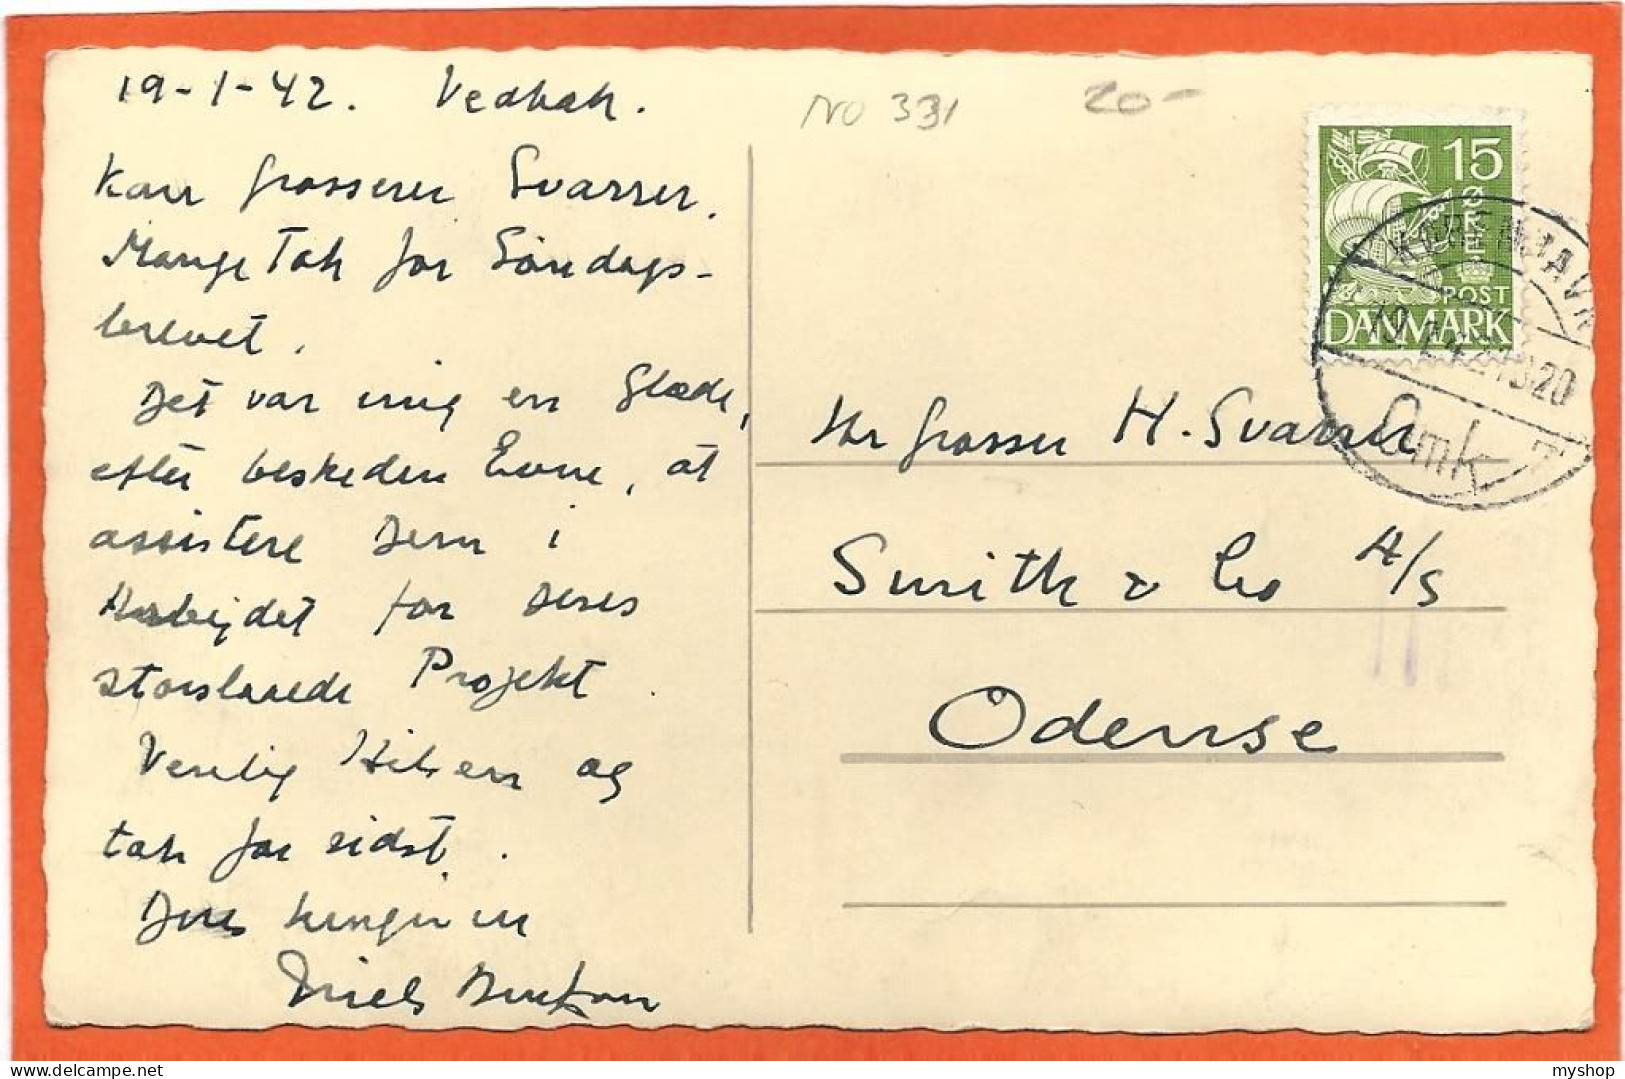 19-1-42. Vedbæk.
NO 331
20-
Kære Grosserer Svarrer.
Mange Tak for Søndags-
brevet.
Det var mig en Glæde,
efter beskeden Evne, at
assistere Dem i
Arbejdet for Deres
storslaaede Projekt.
Venlig Hilsen og
tak for sidst.
Deres hengivne
Niels
15
ØRE
POST
DANMARK
KØBENHAVN
19.1.42 1320
Omk
Hr Grosserer H. Svarrer
Smith & Co A/S
Odense
myshop